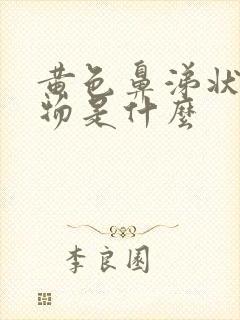 黄色鼻涕状
物是什麼
李良園